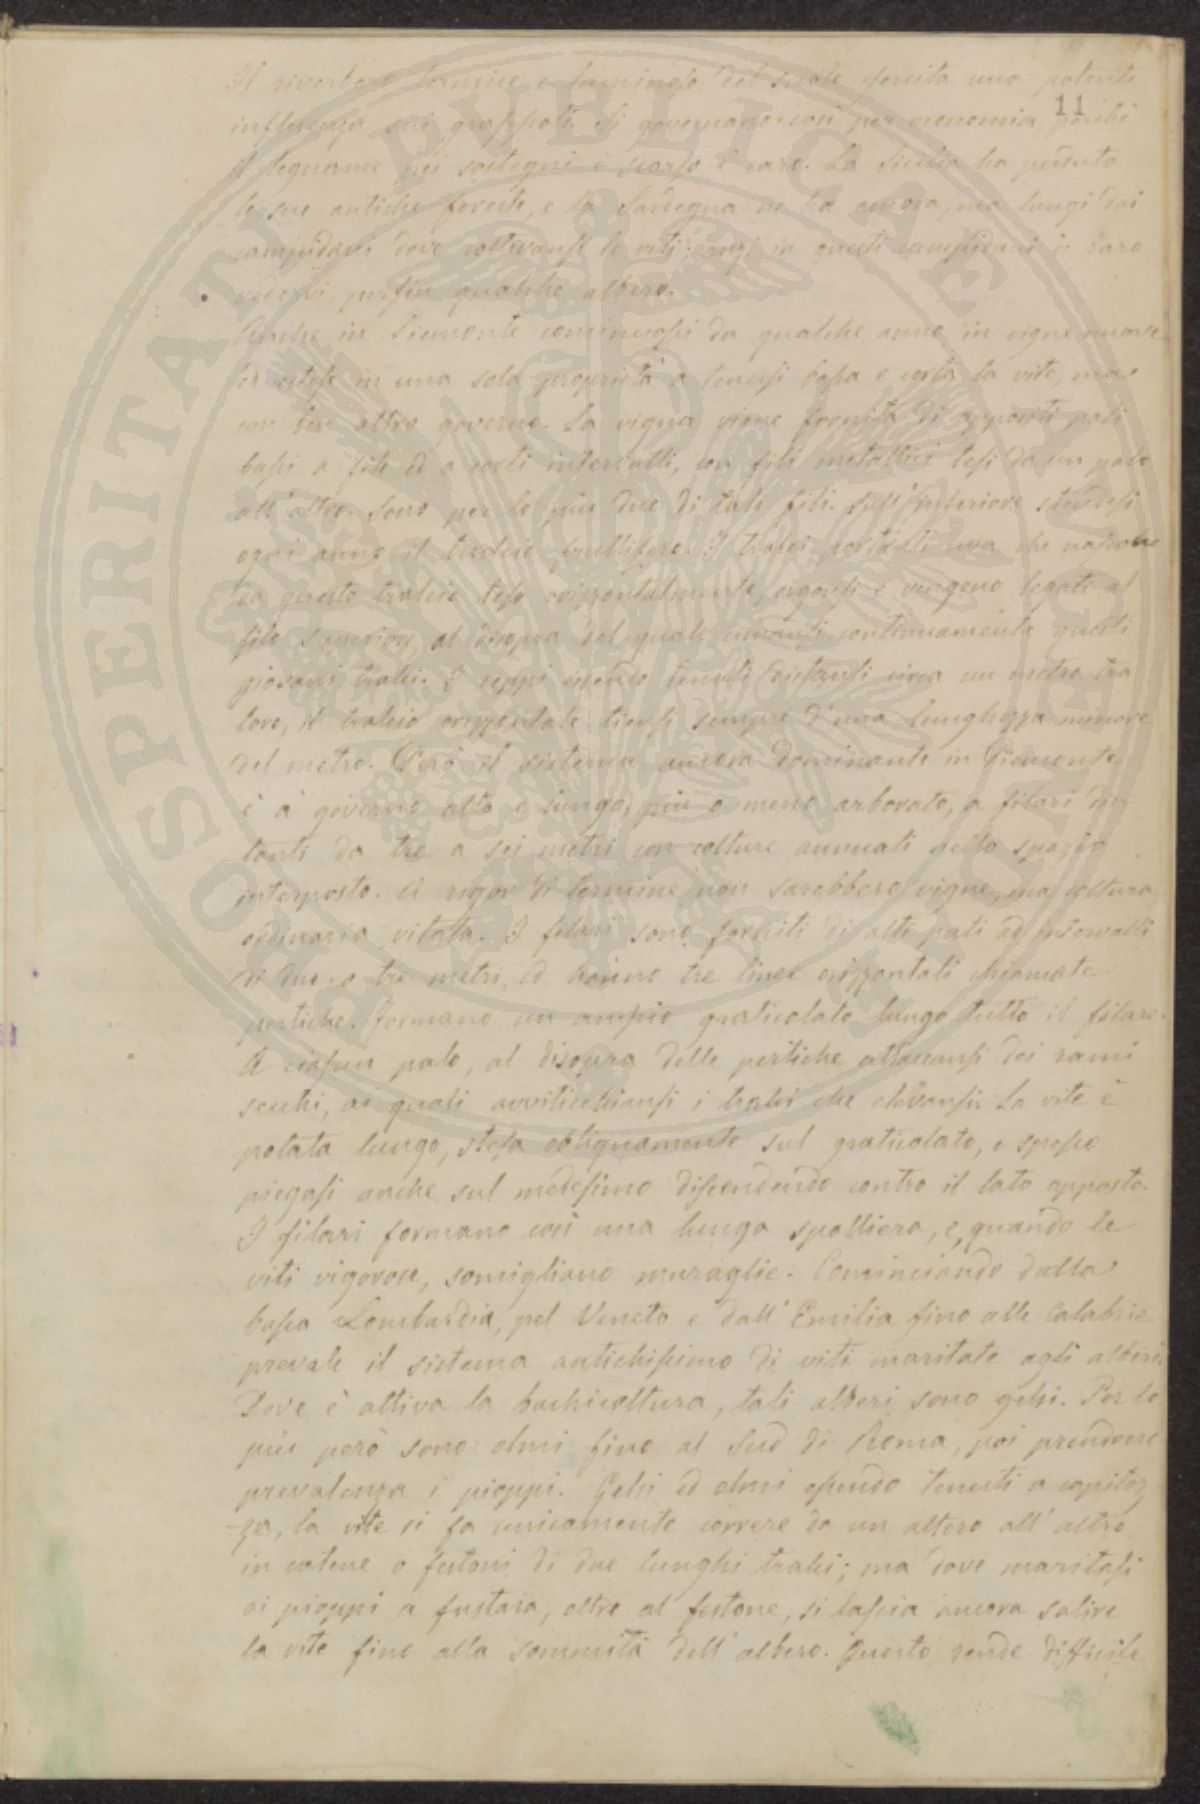 11
Il riverbero termico e luminoso del suolo esercita una potente
influenza sui grappoli. Si governano così per economia perchè
il legname pei sostegni è scarso e caro. La Sicilia ha perduto
le sue antiche foreste, e la Sardegna ne ha ancora, ma lungi dai
campidani dove coltivansi le viti; anzi in questi campidani è raro
vedervi perfin qualche albero.
Anche in Piemonte cominciossi da qualche anno in vigne nuove
ed estese in una sola proprietà a tenersi bassa e corta la vite, ma
con ben altro governo. La vigna viene fornita di appositi pali
bassi a file ed a corti intervalli, con fili metallici tesi da un palo
all'altro. Sono per lo più due di tali fili. Sull'inferiore stendesi
ogni anno il tralcio fruttifero. I tralci portanti uva che nascono
da questo tralcio teso orizzontalmente, ergonsi e vengono legati al
filo superiore, al disopra del quale cimansi continuamente questi
giovani tralci. I ceppi essendo tenuti distanti circa un metro tra
loro, il tralcio orizzontale tiensi sempre d'una lunghezza minore
del metro. Però il sistema ancora dominante in Piemonte
è a governo alto e lungo, più o meno arborato, a filari dis-
tanti da tre a sei metri con colture annuali nello spazio
interposto. A rigor di termine non sarebbero vigne, ma coltura
ordinaria vitata. I filari sono forniti di alti pali ad intervalli
di due o tre metri, ed hanno tre linee orizzontali chiamate
pertiche. Formano un ampio graticolato lungo tutto il filare.
A ciascun palo, al disopra delle pertiche attaccansi dei rami
secchi, ai quali avviticchiansi i tralci che elevansi. La vite è
potata lungo, stesa obliquamente sul graticolato, e spesso
piegasi anche sul medesimo discendendo contro il lato opposto.
I filari formano così una lunga spalliera, e, quando le
viti vigorose, somigliano muraglie. Cominciando dalla
bassa Lombardia, pel Veneto e dall'Emilia fino alle Calabrie
prevale il sistema antichissimo di viti maritate agli alberi.
Dove è attiva la bachicoltura, tali alberi sono gelsi. Per lo
più però sono olmi fino al Sud di Roma, poi prendono
prevalenza i pioppi. Gelsi ed olmi essendo tenuti a capitoz-
-za, la vite si fa unicamente correre da un albero all'altro
in catene o festoni di due lunghi tralci; ma dove maritasi
ai pioppi a fustaia, oltre al festone, si lascia ancora salire
la vite fino alla sommità dell'albero. Questo rende difficile
PROSPERITATI PUBLICAE AUGENDAE